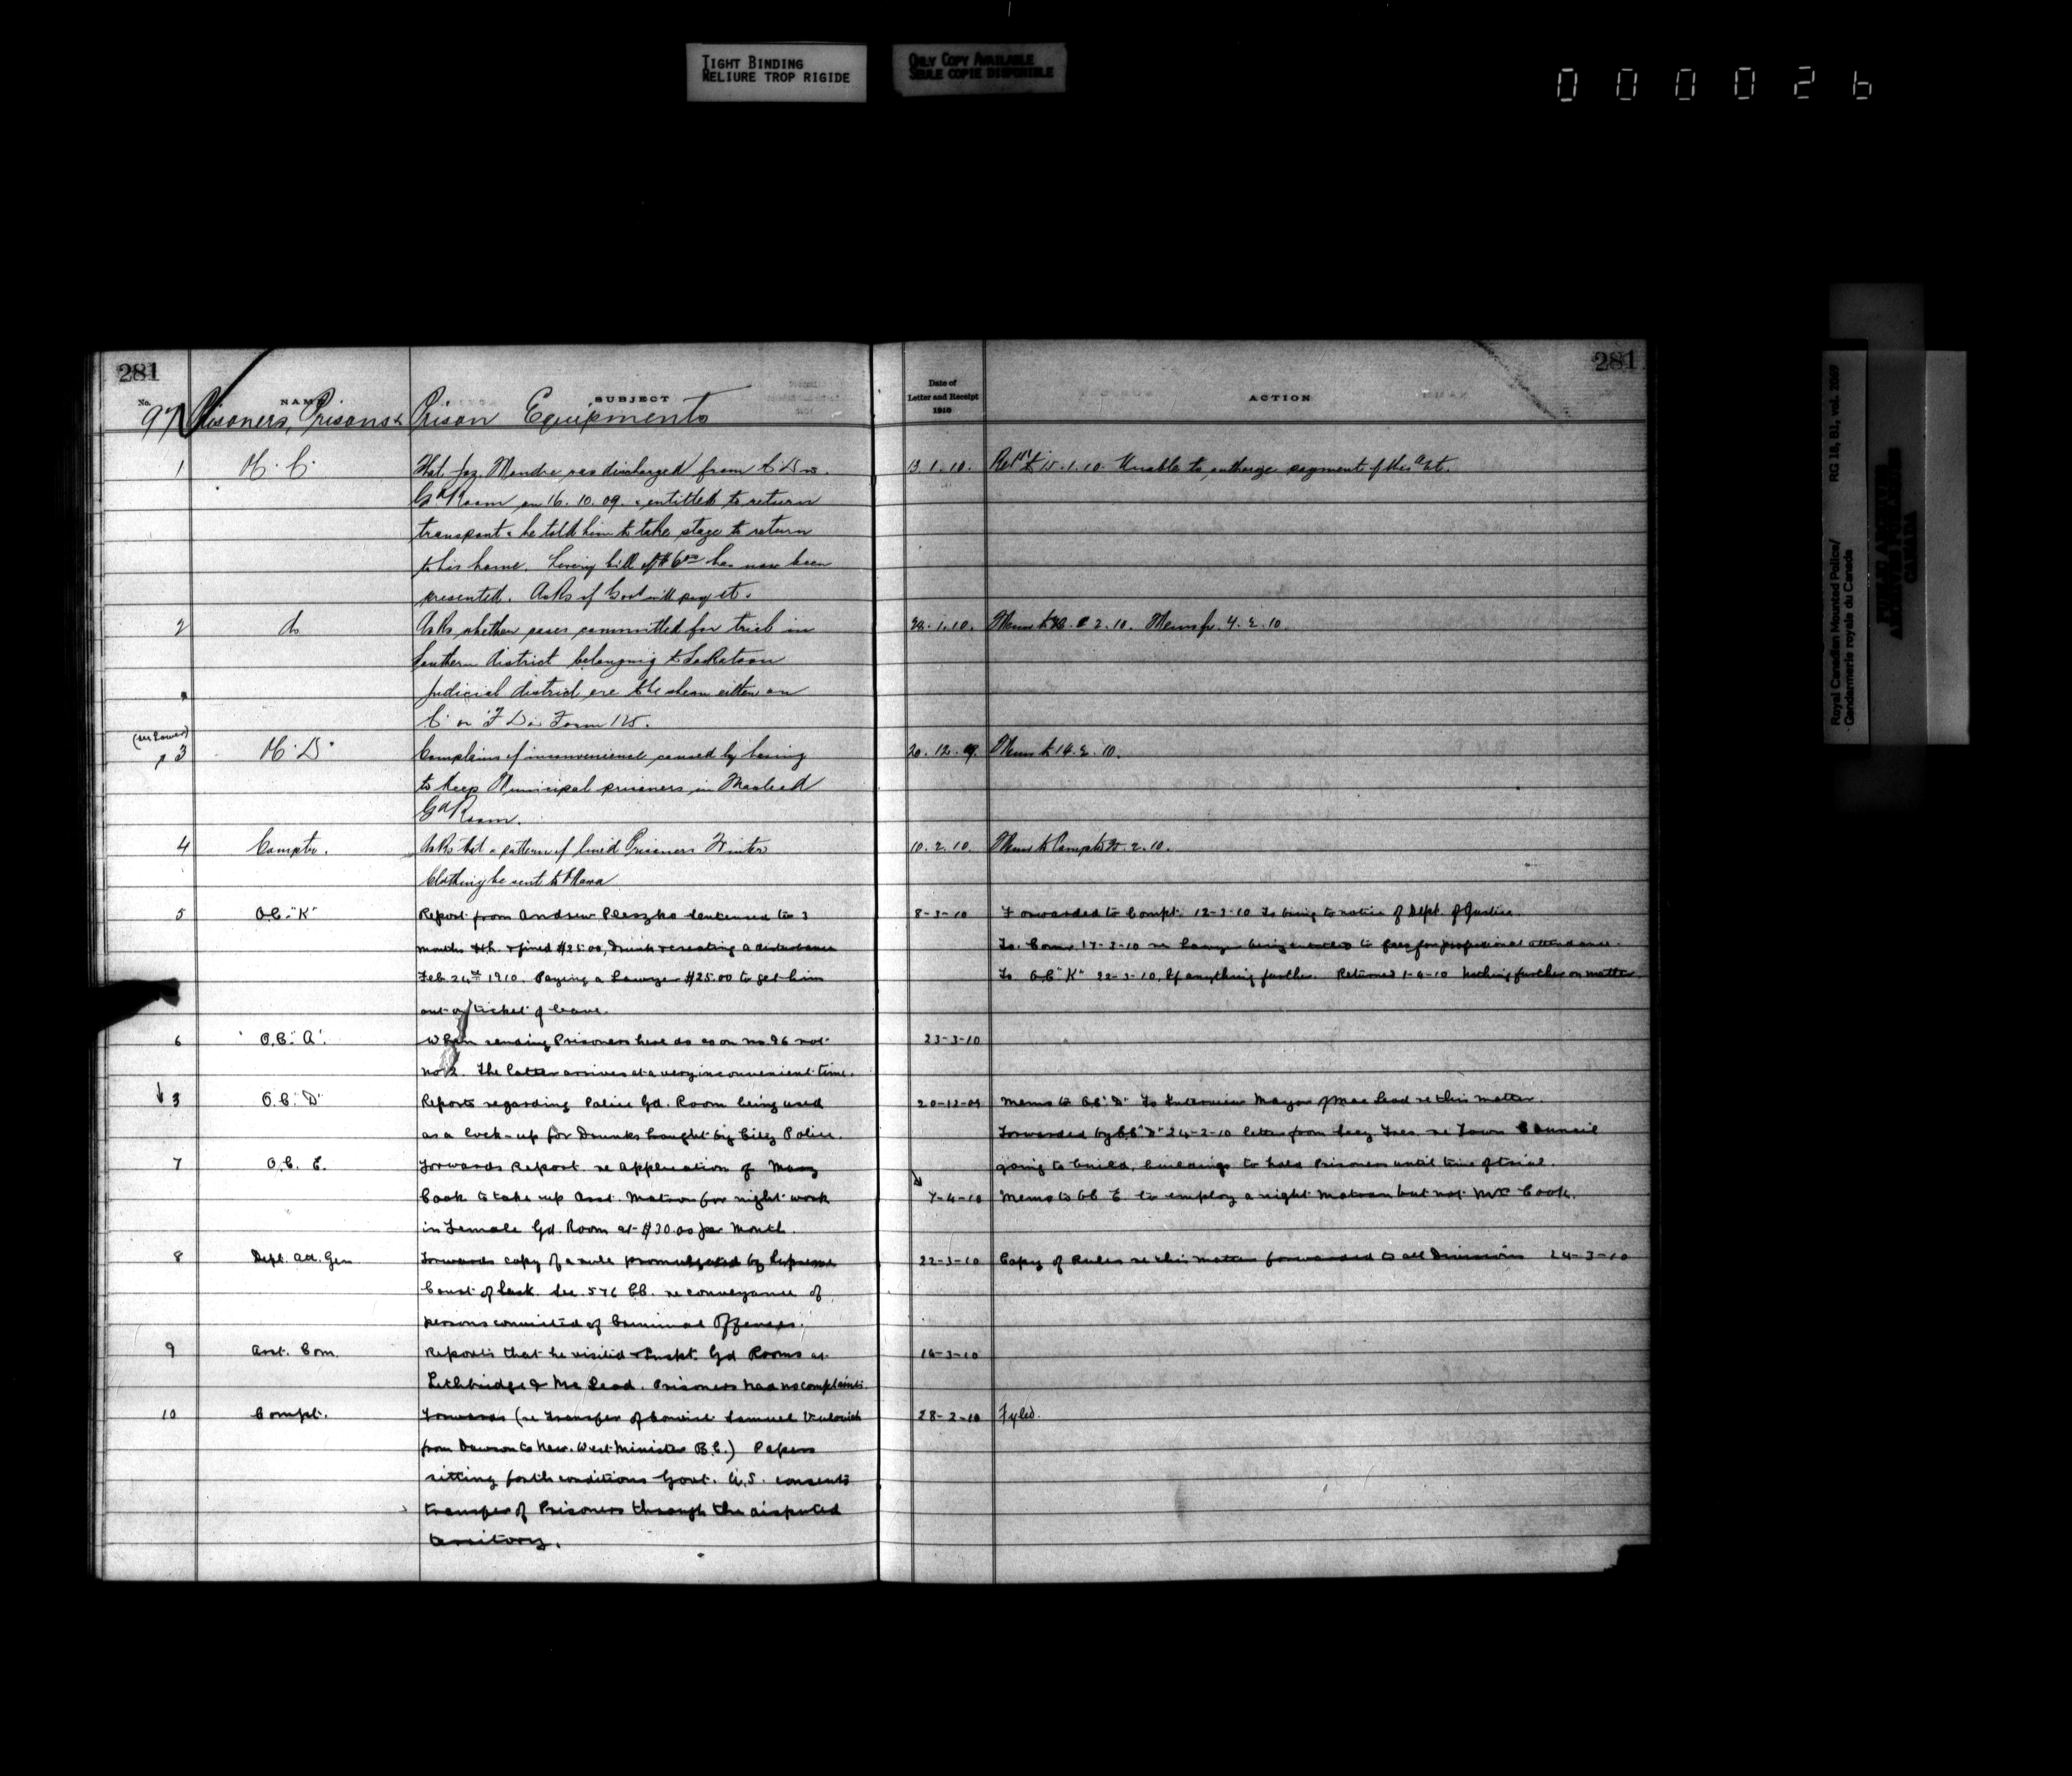 TIGHT BINDING
RELIURE TROP RIGIDE
ONLY COPY AVAILABLE
SEULE COPIE DISPONIBLE
000026
281
281
No.
NAME
SUBJECT
Date of
Letter and Receipt
1910
ACTION
97 Prisoners, Prisons & Prison Equipments
1
That Jaz. Mondre was discharged from
13.1.10.
15.1.10. Unable to authorize payment of this a/ct.
Gd Room on 16.10.09. entitled to return
transport & he told him to take stage to return
to his home. Livery bill of $6.00 has now been
presented. Asks if Govt will pay it.
2 do
Asks whether cases committed for trial in
1.10.
2.10. 4.2.10.
Southern District belonging to Saskatoon
Judicial district are to be shewn either on
"C" or "F" Div Form 125.
(see Lower)
3
Complains of inconvenience caused by having
20.12.09.
Memo to 14.2.10.
to keep Municipal prisoners in Macleod
Gd Room.
4 Comptr.
Asks that a pattern of lined Prisoners Winter
10.2.10.
Memo to Comptr 2.10.
Clothing be sent to Ottawa
5 O.C. "K"
Report from Andrew Pleszko sentenced to 3
8-3-10
Forwarded to Compt. 12-3-10 To bring to notice of Dept. of Justice.
months & fined $25.00, Drunk & creating a disturbance
To Com. 17-3-10 re Lawyer being entitled to fees for professional attendance.
Feb 24th 1910. Paying a Lawyer $25.00 to get him
To O.C "K" 22-3-10, If anything further. Returned 1-4-10 Nothing further on matter
out on ticket of leave.
6 O.C. "A".
When sending Prisoners here do so on no 96 not
23-3-10
no 2. The latter arrives at a very inconvenient time.
3 O.C. "D"
Reports regarding Police Gd. Room being used
20-12-09
Memo to O.C "D" To Interview Mayor of MacLeod re this matter.
as a lock-up for Drunks brought by City Police.
Forwarded by O.C "D" 24-2-10 letter from Secy Treas. re Town Council
7 O.C. E.
Forwards Report re application of Mary
going to build, buildings to hold Prisoners until time of trial.
Cook to take up Asst. Matron for night work
7-4-10
Memo to O.C E to employ a night matron but not Mrs Cook.
in Female Gd. Room at $30.00 per Month.
8 Dept. Att. Gen
Forwards copy of a rule promulgated by Supreme
22-3-10
Copy of Rules re this matter forwarded to all Divisions 24-3-10
Court of Sask. Sec. 576 CC. re conveyance of
persons committed of Criminal Offenses.
9 Asst. Com.
Reports that he visited & Inspt. Gd Rooms at
16-3-10
Lethbridge & Mc Leod. Prisoners had no complaints.
10 Compt.
Forwards (re Transfer of Convict Samuel
28-2-10
Fyled.
from Dawson to New. West Minister B.C.) Papers
sitting forth conditions Govt. U.S. consents
transfer of Prisoners through the disputed
territory.
Royal Canadian Mounted Police/
Gendarmerie royale du Canada
RG 18, B1, vol. 2069
PUBLIC ARCHIVES
ARCHIVES PUBLIQUES
CANADA